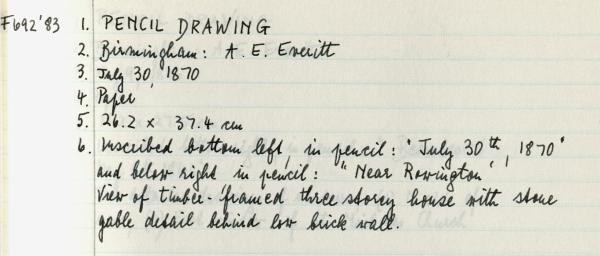 F692'83 1. PENCIL DRAWING
2. Birmingham: A. E. Everitt
3. July 30, 1870
4. Paper
5. 26.2 x 37.4 cm
6. Inscribed bottom left, in pencil: "July 30th, 1870"
and below right in pencil: "Near Rowington"
View of timber-framed three storey house with stone
gable detail behind low brick wall.